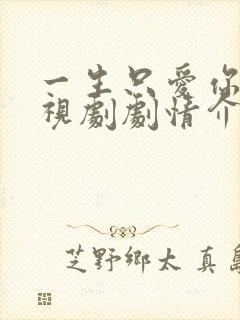 一生只愛你
視劇劇情介
芝野鄉太 真島